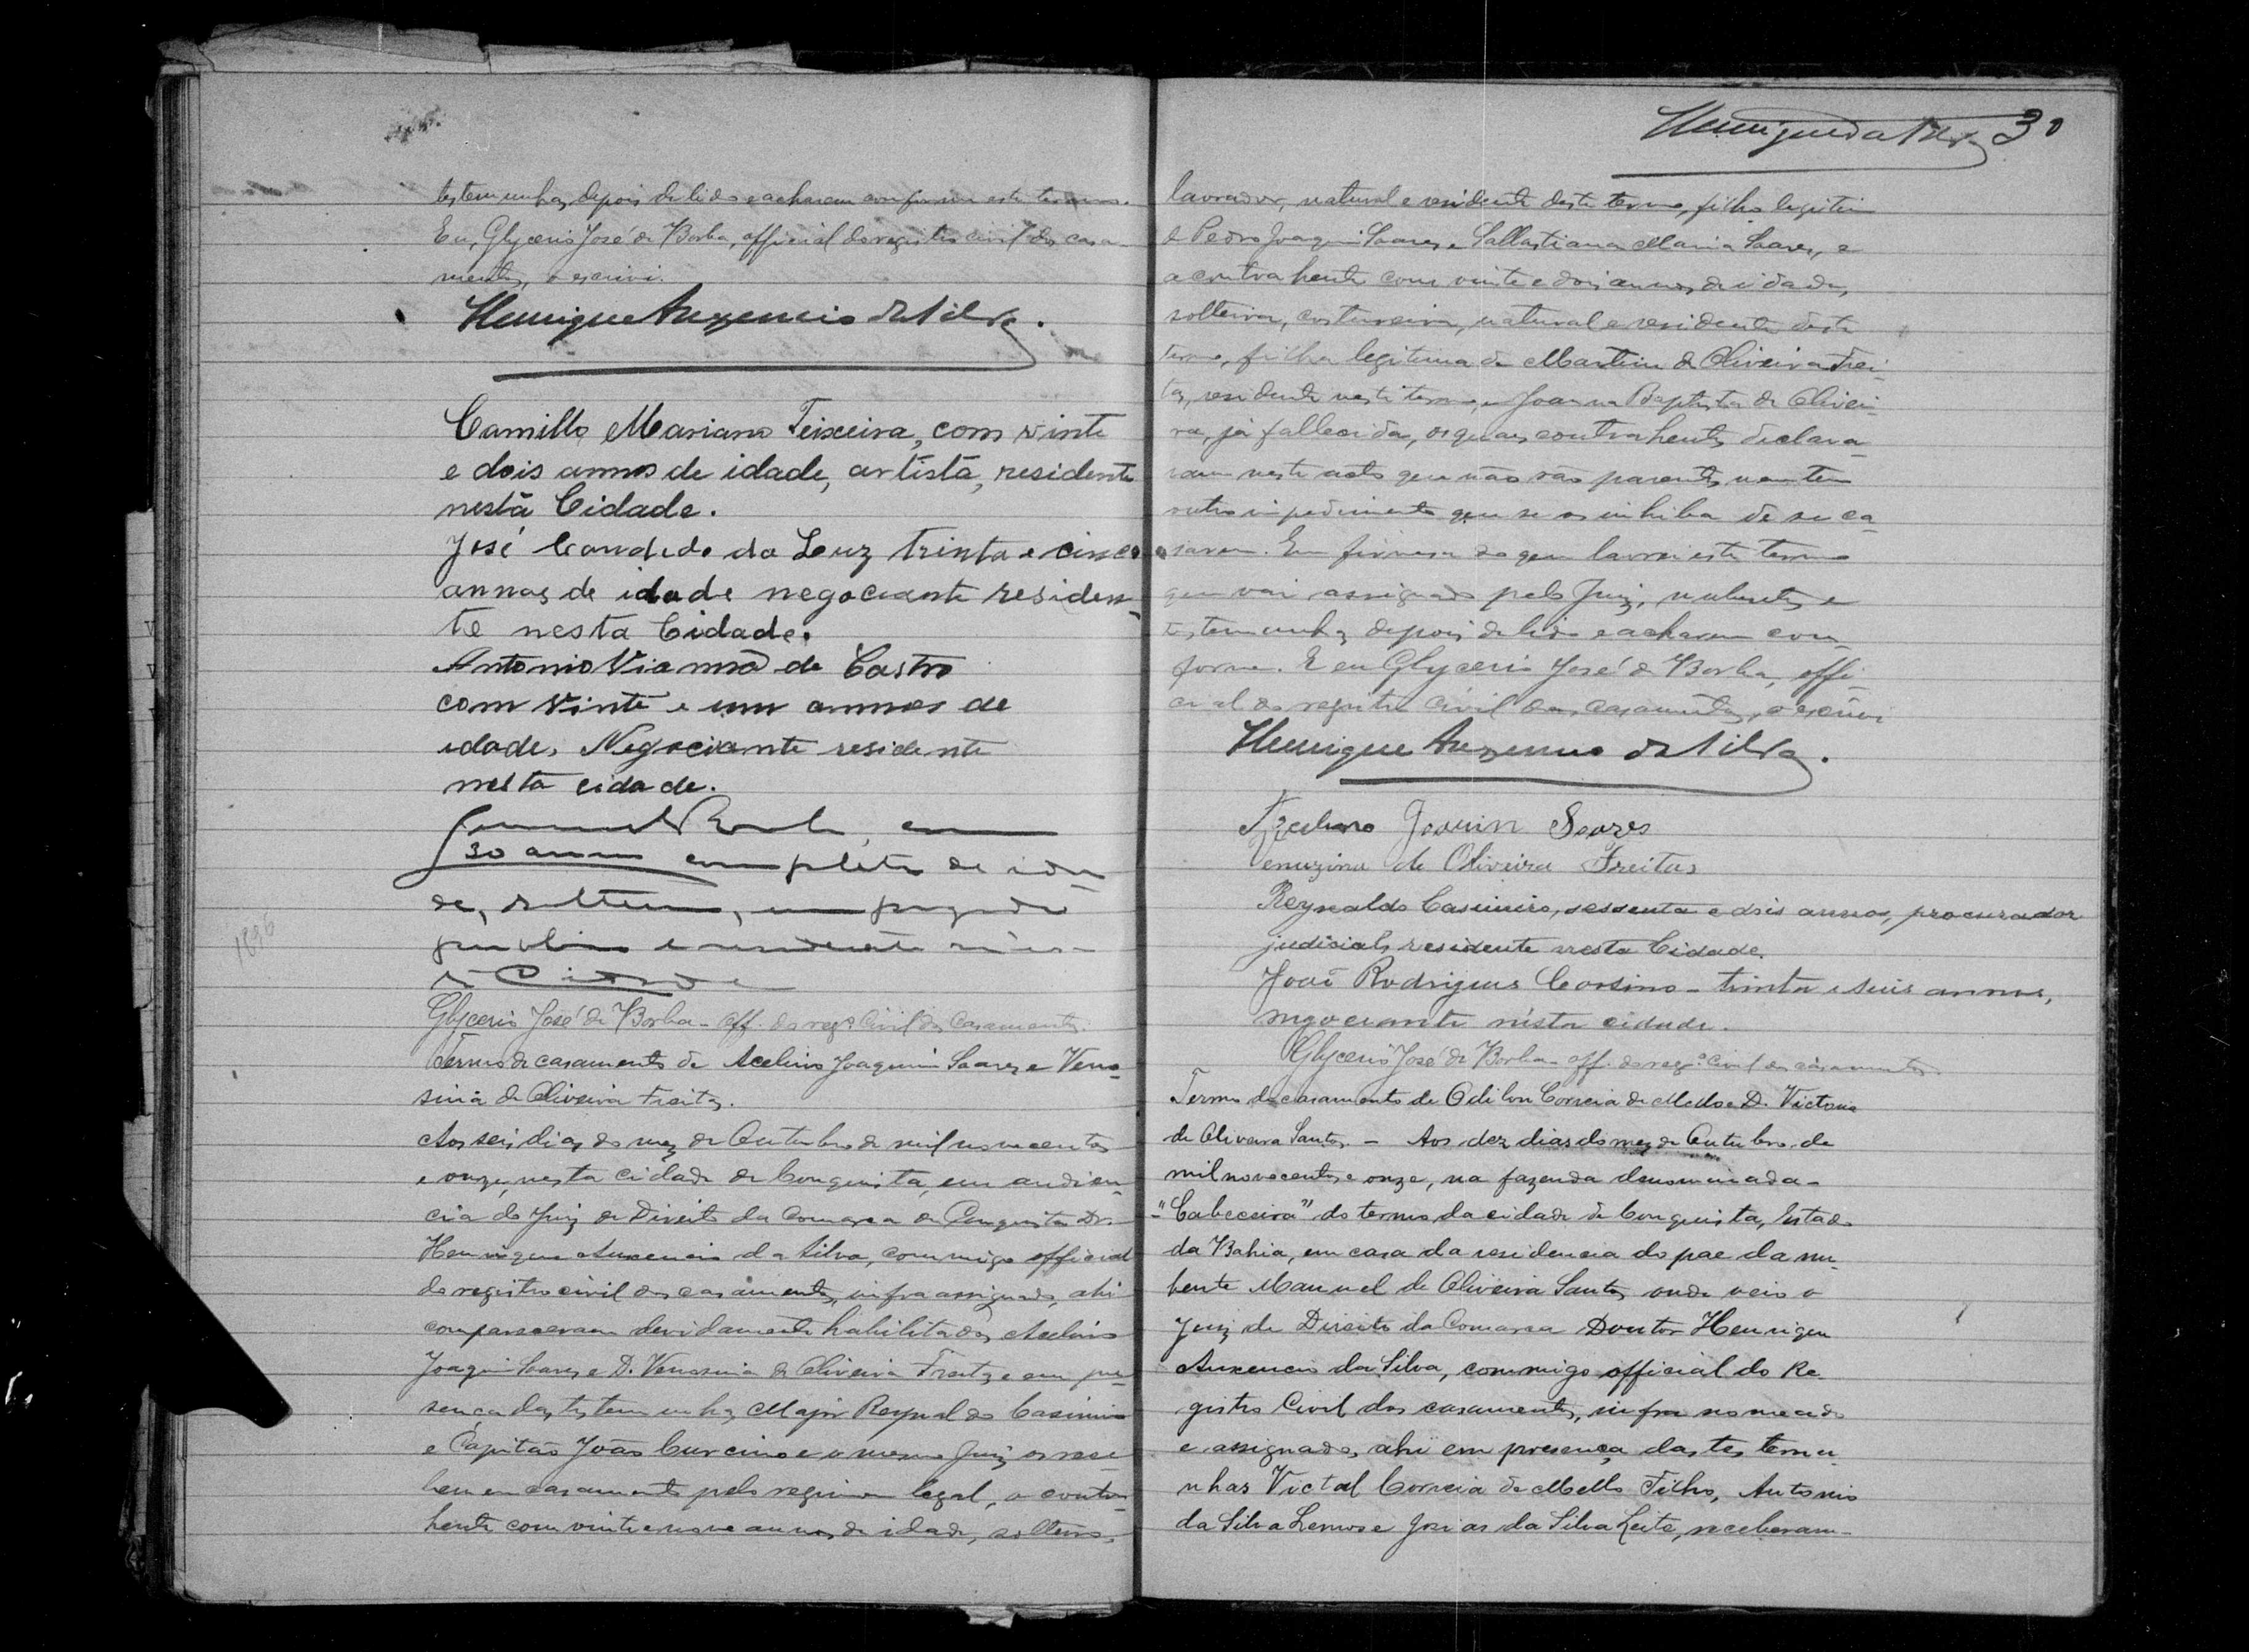 testemunhas, depois de lido e acharem conforme este termo.
Eu, Glycerio José de Borba, official do registro civil dos casa-
mentos, o escrivi.
Henrique Auxencio da Silva.
Camillo Mariano Teixeira, com vinte
e dois annos de idade, artista, residente
nesta Cidade.
José Candido da Luz trinta e cinco
annos de idade negociante residen-
te nesta Cidade.
Antonio Vianna de Castro
com vinte e um annos de
idade, Negociante residente
nesta cidade.
30 annos completos de ida-
de, solteiro, empregado
publico e residente nes-
ta Cidade
1896
Glycerio José de Borba - off. do regº civil dos casamentos.
Termo de casamento de Acelino Joaquim Soares e Venu-
sina de Oliveira Freitas.
Aos seis dias do mez de Outubro de mil novecentos
e onze, nesta cidade de Conquista, em audien-
cia do Juiz de Direito da Comarca de Conquista Dr.
Henrique Auxencio da Silva, commigo official
do registro civil dos casamentos, infra assignado, ahi
compareceram devidamente habilitados Acelino
Joaquim Soares e D. Venusina de Oliveira Freitas e em pre-
sença das testemunhas Major Reynaldo Casimiro
e Capitão João Curcino e o mesmo Juiz os rece-
beu em casamento pelo regimen legal, o contra-
hente com vinte e nove annos de idade, solteiro,
Henrique da Silva 30
lavrador, natural e residente deste termo, filho legitimo
de Pedro Joaquim Soares e Sallustiana Maria Soares, e
a contrahente com vinte e dois annos de idade,
solteira, costureira, natural e residente deste
termo, filha legitima de Martim de Oliveira Frei-
tas, residente neste termo, e Joanna Baptista de Olivei-
ra, já fallecida, os quaes contrahentes declara-
ram neste acto que não são parentes nem tem
outro impedimento que se os inhiba de se ca-
sarem. Em firmeza do que lavrei este termo
que vai assignado pelo Juiz, nubentes e
testemunhas depois de lido e acharem con-
forme. E eu Glycerio José de Borba, offi-
cial do registro civil dos casamentos, o escrivi
Henrique Auxencio da Silva.
Joaquim Soares
Venuzina de Oliveira Freitas
Reynaldo Casimiro, sessenta e dois annos, procurador
judicial, residente nesta Cidade.
João Rodrigues Corsino - trinta e seis annos,
negociante nésta cidade.
Glycerio José de Borba - off. do regº civil dos casamentos
Termo de casamento de Odilon Correia de Mello e D. Victoria
de Oliveira Santos. - Aos dez dias do mez de Outubro de
mil novecentos e onze, na fazenda denominada -
"Cabeceira" do termo da cidade de Conquista, Estado
da Bahia, em casa da residencia do pae da nu-
bente Manuel de Oliveira Santos onde veio o
Juiz de Direito da Comarca Doutor Henrique
Auxencio da Silva, commigo official do Re-
gistro Civil dos casamentos, infra nomeado
e assignado, ahi em presença das testemu-
nhas Victal Correia de Mello Filho, Antonio
da Silva Lemos e Josias da Silva Leite, receberam-